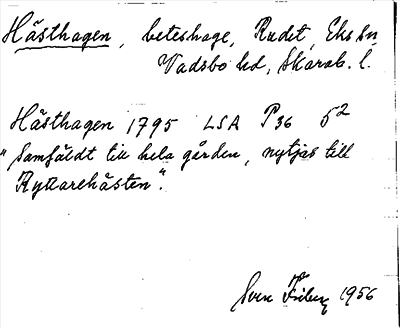 Hästhagen, beteshage, Rudet, Eks sn,
Vadsbo hd, Skarab. l.
Hästhagen 1795 LSA P36 5²
"Samfäldt till hela gården, nytjas till
Ryttarehästen".
Sven 1956